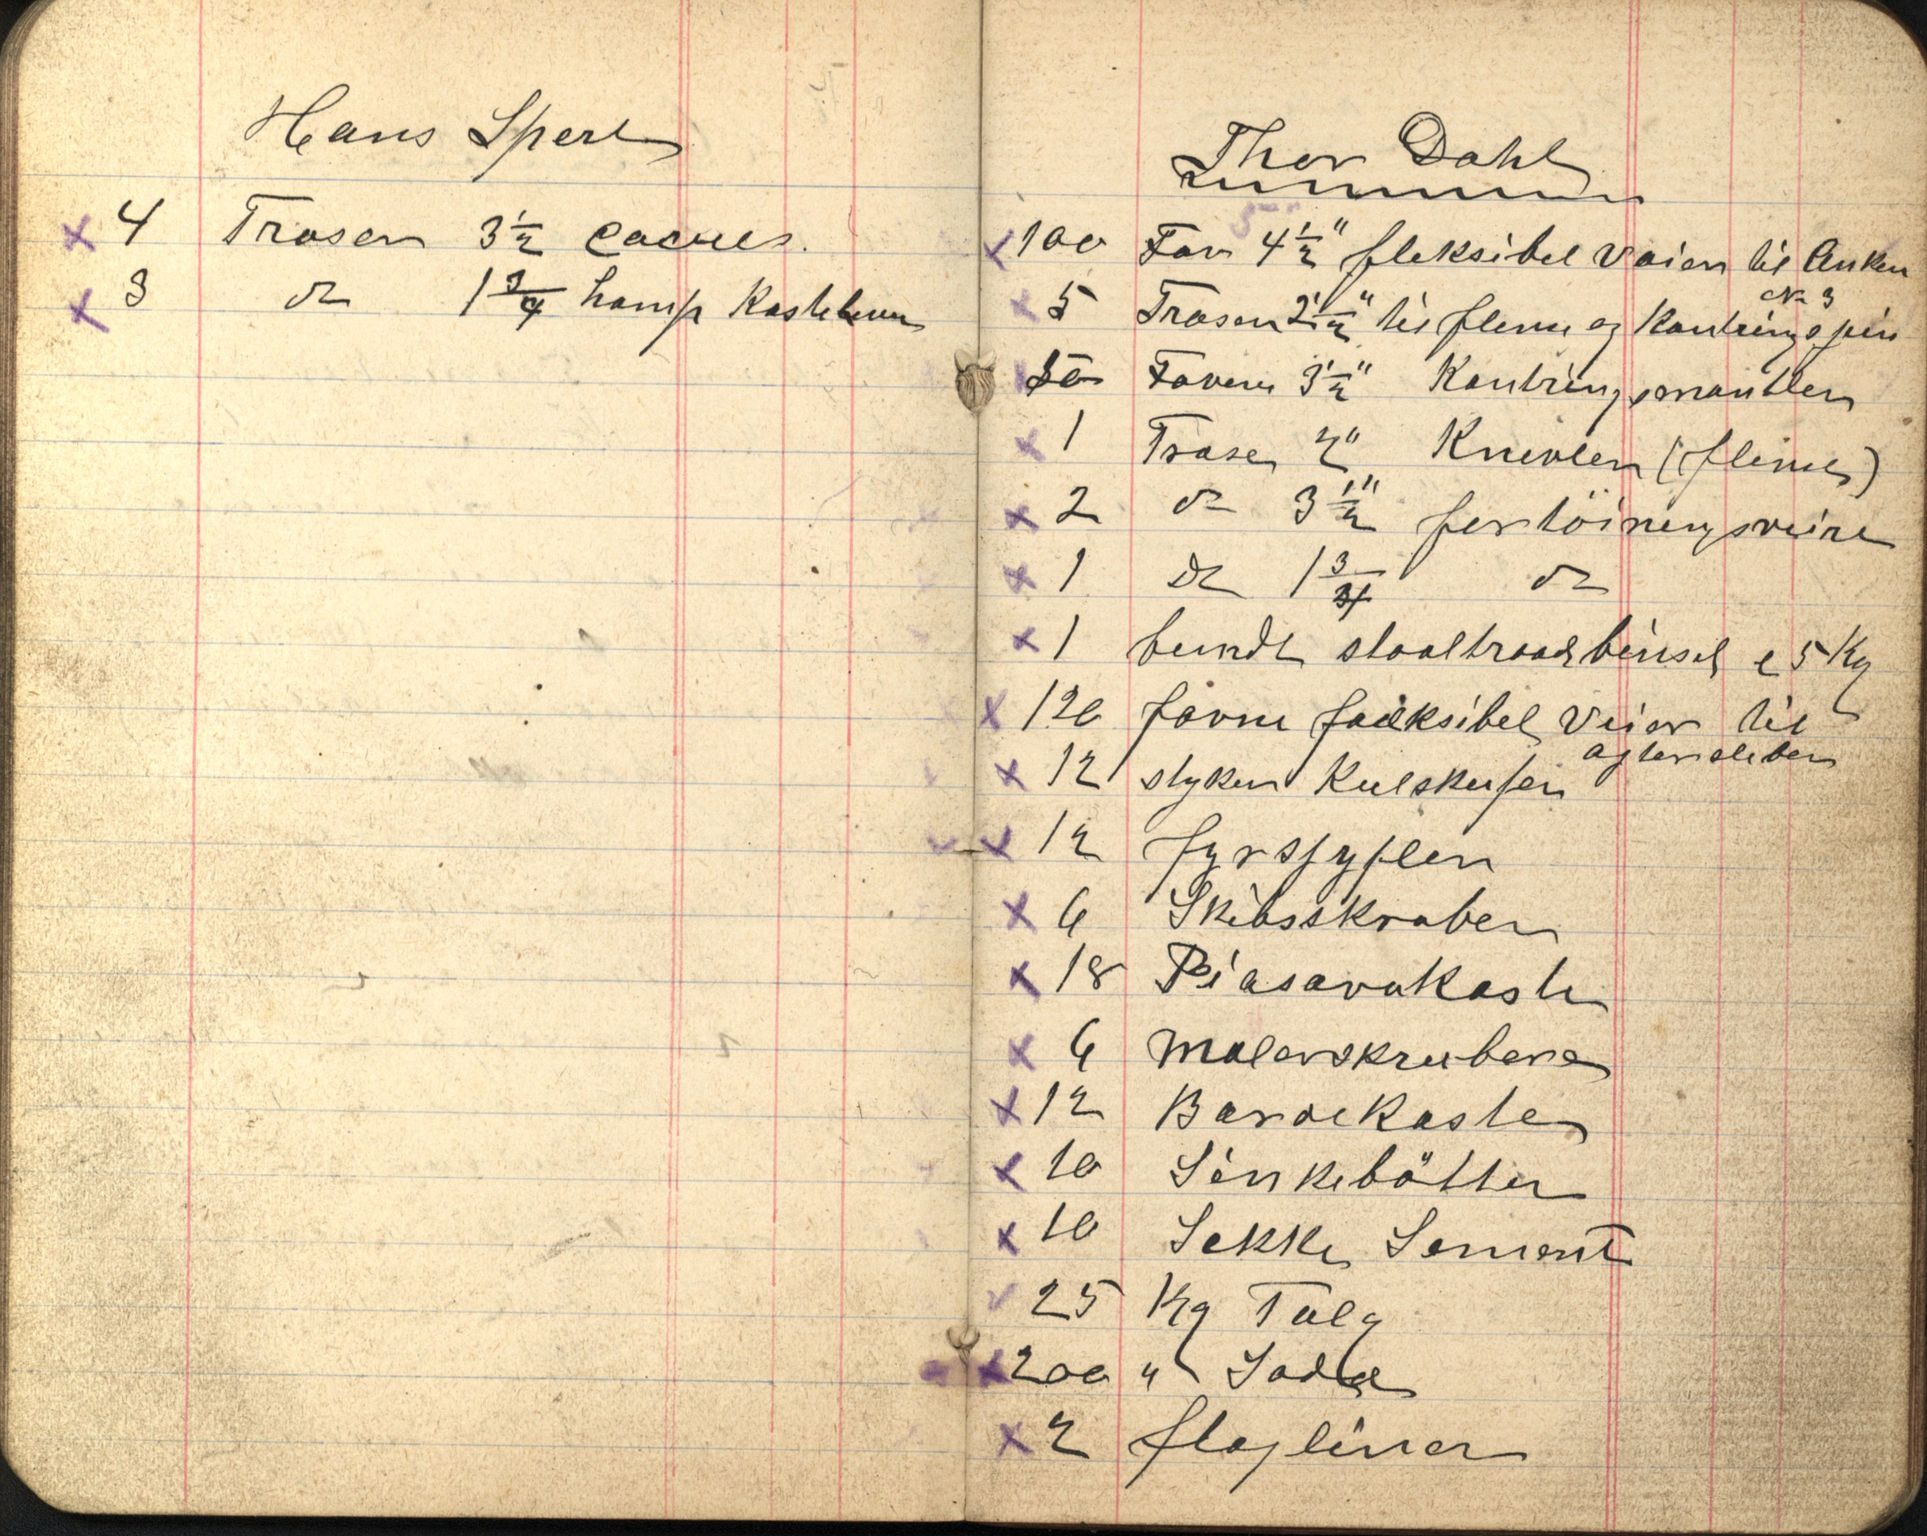 Hans Sperl
x 4 Traser 3 1/2 cocues.
x 3 do 1 3/4 hamp Kasteliner
Thor Dahl
x 100 Fav 4 1/2" fleksibel Vaier til Anker
x 5 Traser 2 1/2" til flenu og Kantringspin
No 3
x 50 Favne 3 1/2" Kantringsmantler
x 1 Trase 2" Knivler (flense)
x 2 do 3 1/2" fortöiningsveire
x 1 do 1 3/4 do
x 1 bundt staaltraadbinsel e 5 Kg
x 120 favne fleksibel Veier til
agterslebere
x 12 styker Kulskufer
x 12 fyrspyfler
x 6 Skibsskraber
x 18 Piasavakoste
x 6 Malerskrubere
x 12 Bardekoste
x 10 Sinkebötter
x 10 Sekke Sement
25 Kg Talg
x 200 " Soda
x 2 flagliner